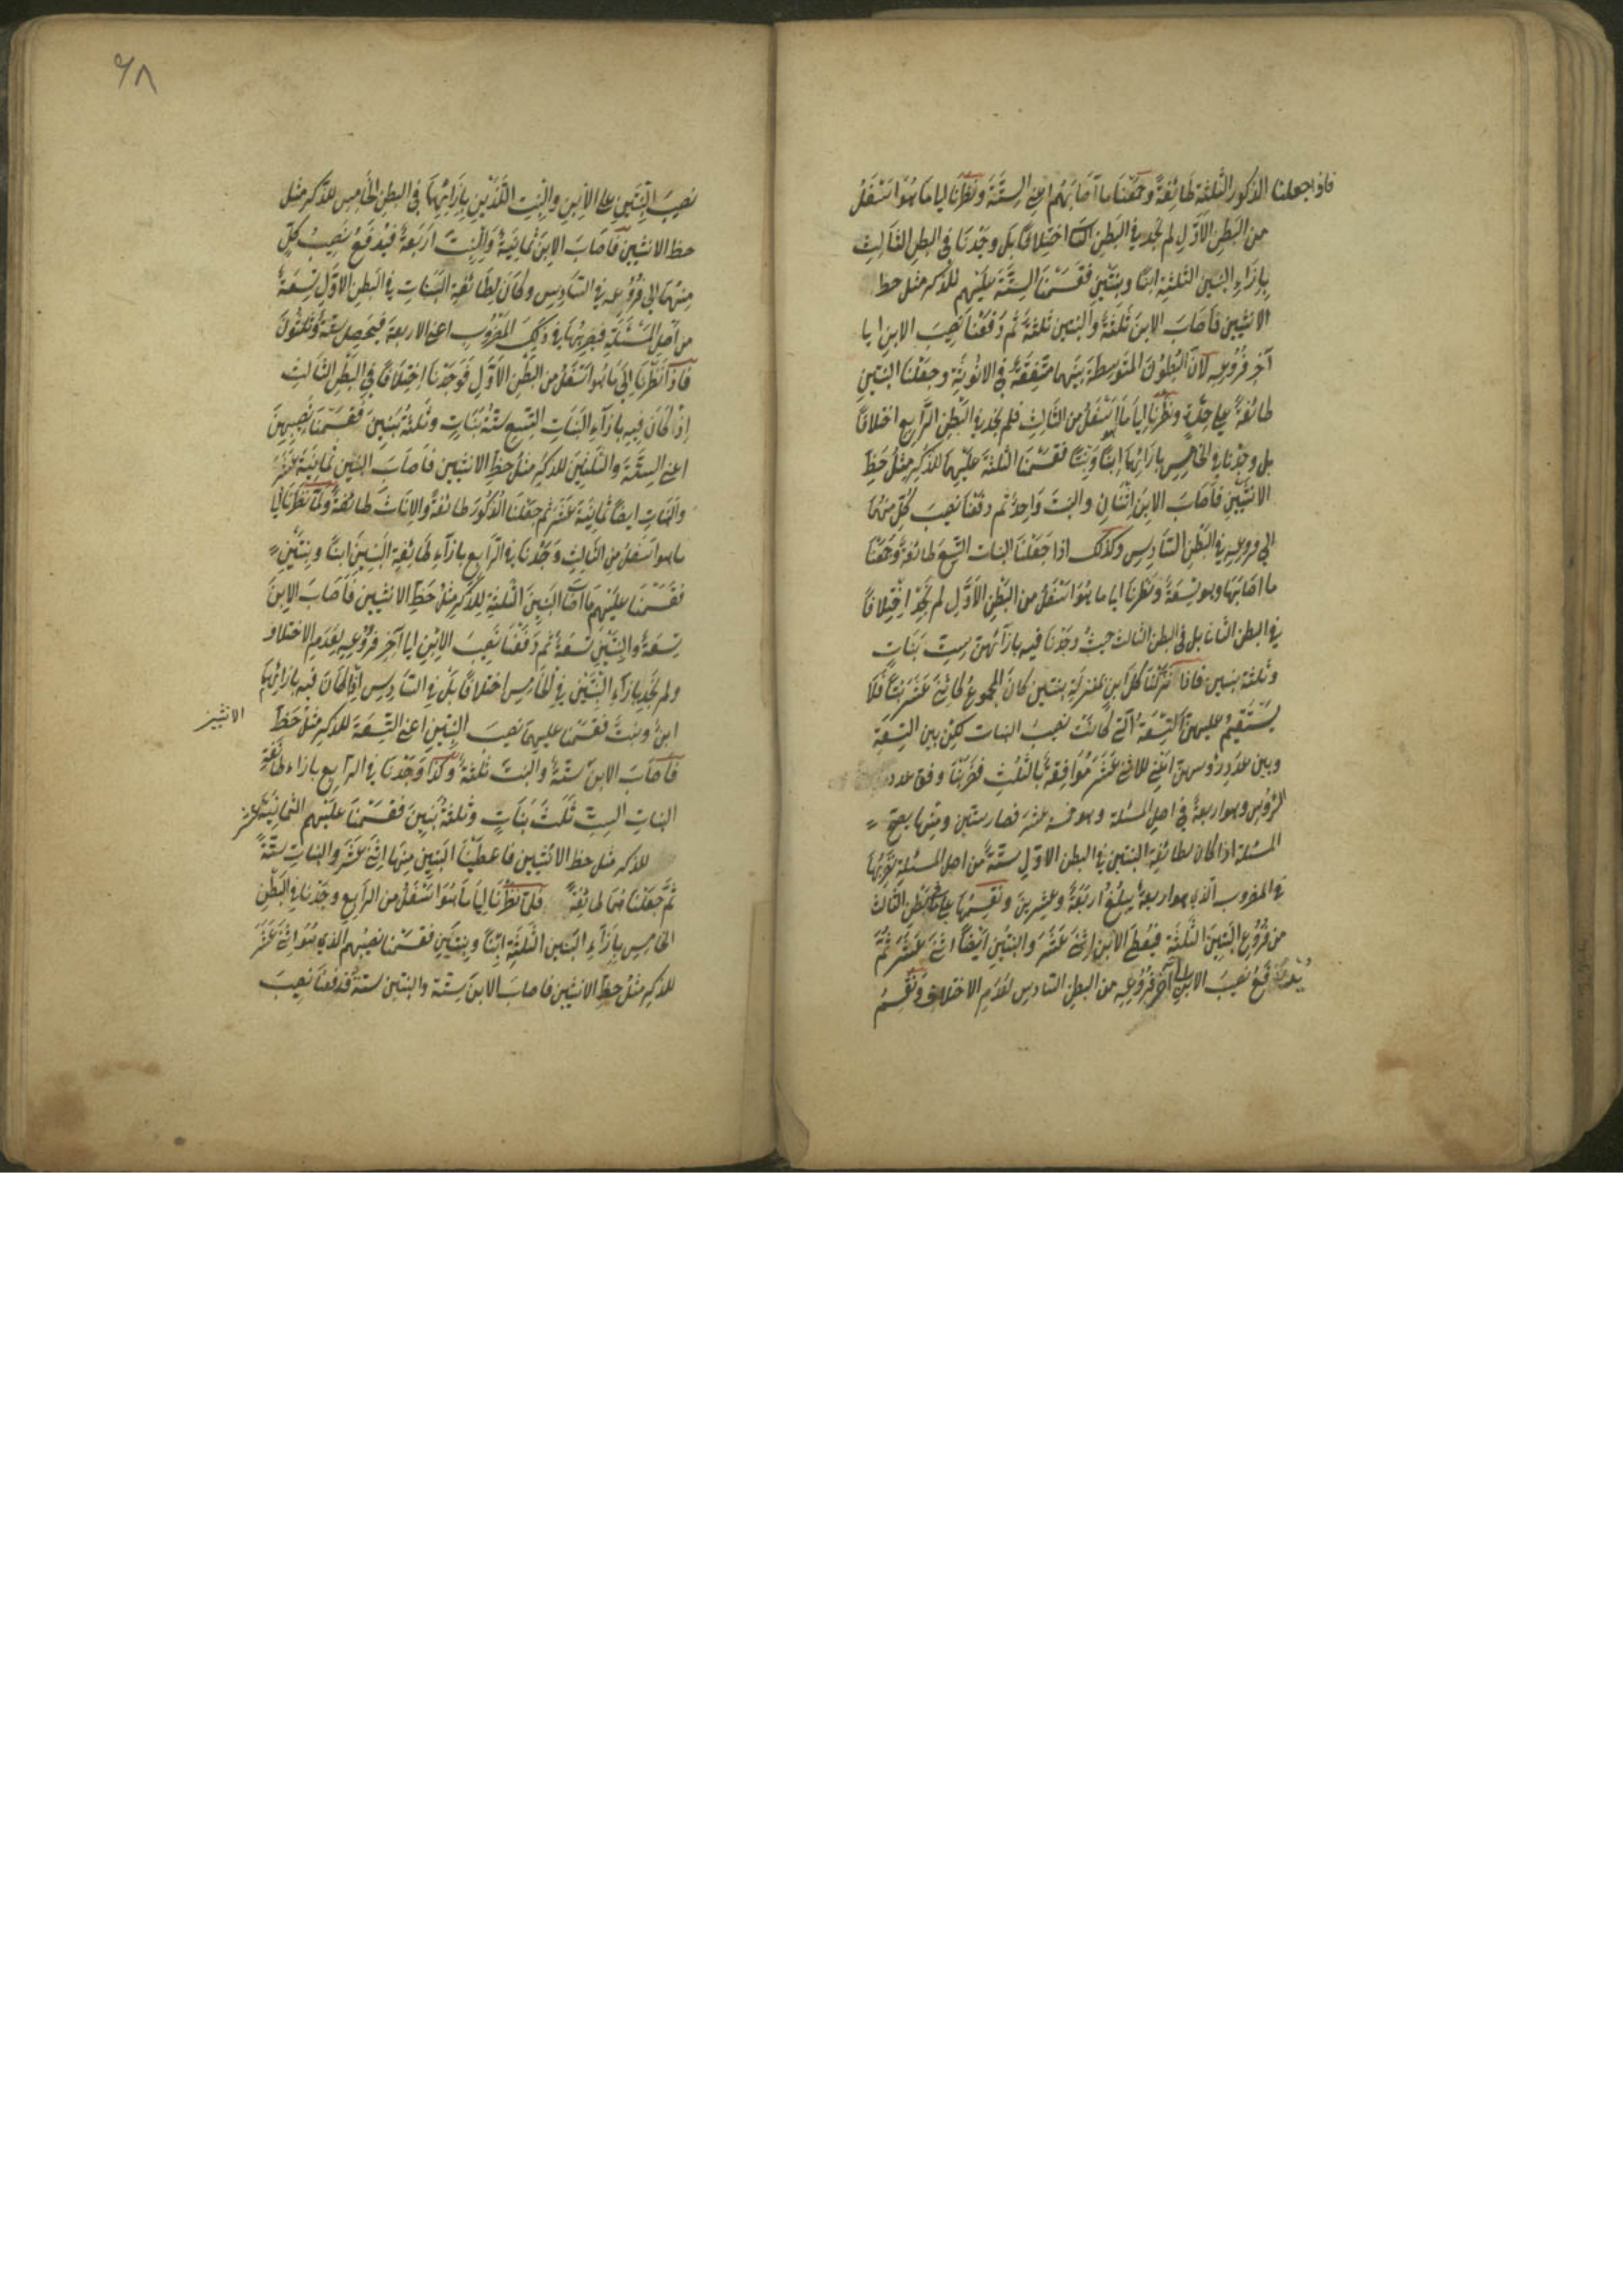 فاذا جعلنا الذكور الثلثة طائفة وجمعنا ما اصابهم اعني الستة ونظرنا الى ما هو اسفل
من البطن الاول لم نجد في البطن اختلافا بل وجدنا في البطن الثالث
بازاء البنين الثلثة ابنا وبنتين فقسمنا الستة عليهم للذكر مثل حظ
الانثيين فاصاب الابن ثلثة والبنتين ثلثة ثم دفعنا نصيب الابن الى
آخر فروعه لان البطون المتوسطة بينهما متفقة في الانوثة وجعلنا البنتين
طائفة على حدة ونظرنا الى ما هو اسفل من الثالث فلم نجد في البطن الرابع اختلافا
بل وجدنا في الخامس بازائهما ابنا وبنتا فقسمنا الثلثة عليهما للذكر مثل حظ
الانثيين فاصاب الابن اثنان والبنت واحد ثم دفعنا نصيب كل منهما
الى فروعه في البطن السادس وكذلك اذا جعلنا البنات التسع طائفة وجمعنا
ما اصابها وهو تسعة ونظرنا الى ما هو اسفل من البطن الاول لم نجد اختلافا
في البطن الثاني بل في البطن الثالث حيث وجدنا فيه بازائهن ست بنات
وثلثة بنين فاذا نزلنا كل ابن بمنزلة بنتين كان المجموع كاثنى عشر بنتا فلا
يستقيم عليهن التسعة التي كانت نصيب البنات لكن بين التسعة
وبين عدد رؤسهن اعني الاثني عشر موافقة بالثلث فضربنا وفق عدد
الرؤس وهو اربعة في اصل المسئلة وهو خمسة عشر فصار ستين ومنها يصح
المسئلة اذا كان لطائفة البنين في البطن الاول ستة من اصل المسئلة نضربها
في المضروب الذي هو اربعة يبلغ اربعة وعشرين ونقسمها على البطن الثالث
من فروع البنين الثلثة فيعطى الابن اثنى عشر والبنتين ايضا اثنى عشر ثم
يدفع نصيب الابن الى آخر فروعه من البطن السادس لعدم الاختلاف ونقسم
٦٨
نصيب البنتين على الابن والبنت اللذين بازائهما في البطن الخامس للذكر مثل
حظ الانثيين فاصاب الابن ثمانية والبنت اربعة فيدفع نصيب كل
منهما الى فروعه في السادس وكان لطائفة البنات في البطن الاول تسعة
من اصل المسئلة فيضربها في ذلك المضروب اعني الاربعة فيحصل ستة وثلثون
فاذا نظرنا الى ما هو اسفل من البطن الاول فوجدنا اختلافا في البطن الثالث
اذ كان فيه بازاء البنات التسع ستة بنات وثلثة بنين فقسمنا نصيبهن
اعني الستة والثلثين للذكر مثل حظ الانثيين فاصاب البنين ثمانية عشر
والبنات ايضا ثمانية عشر ثم جعلنا الذكور طائفة والاناث طائفة ولما نظرنا الى
ما هو اسفل من الثالث وجدنا في الرابع بازاء طائفة البنين ابنا وبنتين
فقسمنا عليهم ما اصاب البنين الثلثة للذكر مثل حظ الانثيين فاصاب الابن
تسعة والبنتين تسعة ثم دفعنا نصيب الابن الى آخر فروعه لعدم الاختلاف
ولم نجد بازاء البنتين في الخامس اختلافا بل في السادس اذ كان فيه بازائهما
ابن وبنت فقسمنا عليهما نصيب البنتين اعني التسعة للذكر مثل حظ
الانثيين
فاصاب الابن ستة والبنت ثلثة وكذا وجدنا في الرابع بازاء طائفة
البنات الست ثلث بنات وثلثة بنين فقسمنا عليهم الثمانية عشر
للذكر مثل حظ الانثيين فاعطينا البنين منها اثنى عشر والبنات ستة
ثم جعلنا طائفة فلما نظرنا الى ما هو اسفل من الرابع وجدنا في البطن
الخامس بازاء البنين الثلثة ابنا وبنتين فقسمنا نصيبهم الذي هو اثنى عشر
للذكر مثل حظ الانثيين فاصاب الابن ستة والبنتين ستة فدفعنا نصيب